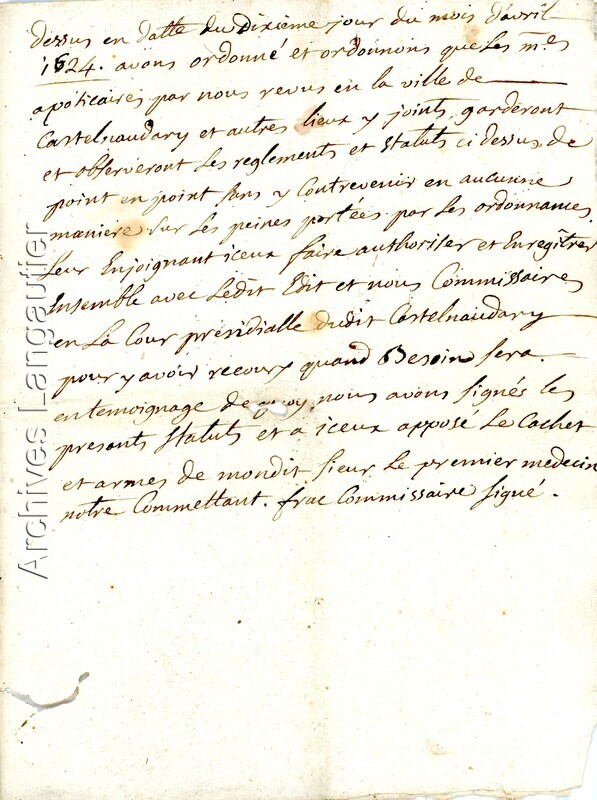 dessus en datte du Dixième jour du mois d'avril
1624. avons ordonné et ordonnons que les m.es
apoticaires par nous revus en la ville de
Castelnaudary et autres lieux y joints, garderont
et observeront les reglements et statuts ci dessus, de
point en point sans y contrevenir en aucunne
maniere sur les peines portées par les ordonnances.
Leur Enjoignant iceux faire authoriser et Enregîtrer
Ensemble avec Ledit Edit et nous Commissaires
en La Cour présidialle dudit Castelnaudary
pour y avoir recours quand Besoin sera.
en temoignage de quoy, nous avons signés les
presents statuts et a iceux apposé Le Cachet
et armes de mondit sieur Le premier medecin
notre Commettant. frac Commissaire signé.
Archives Langautier